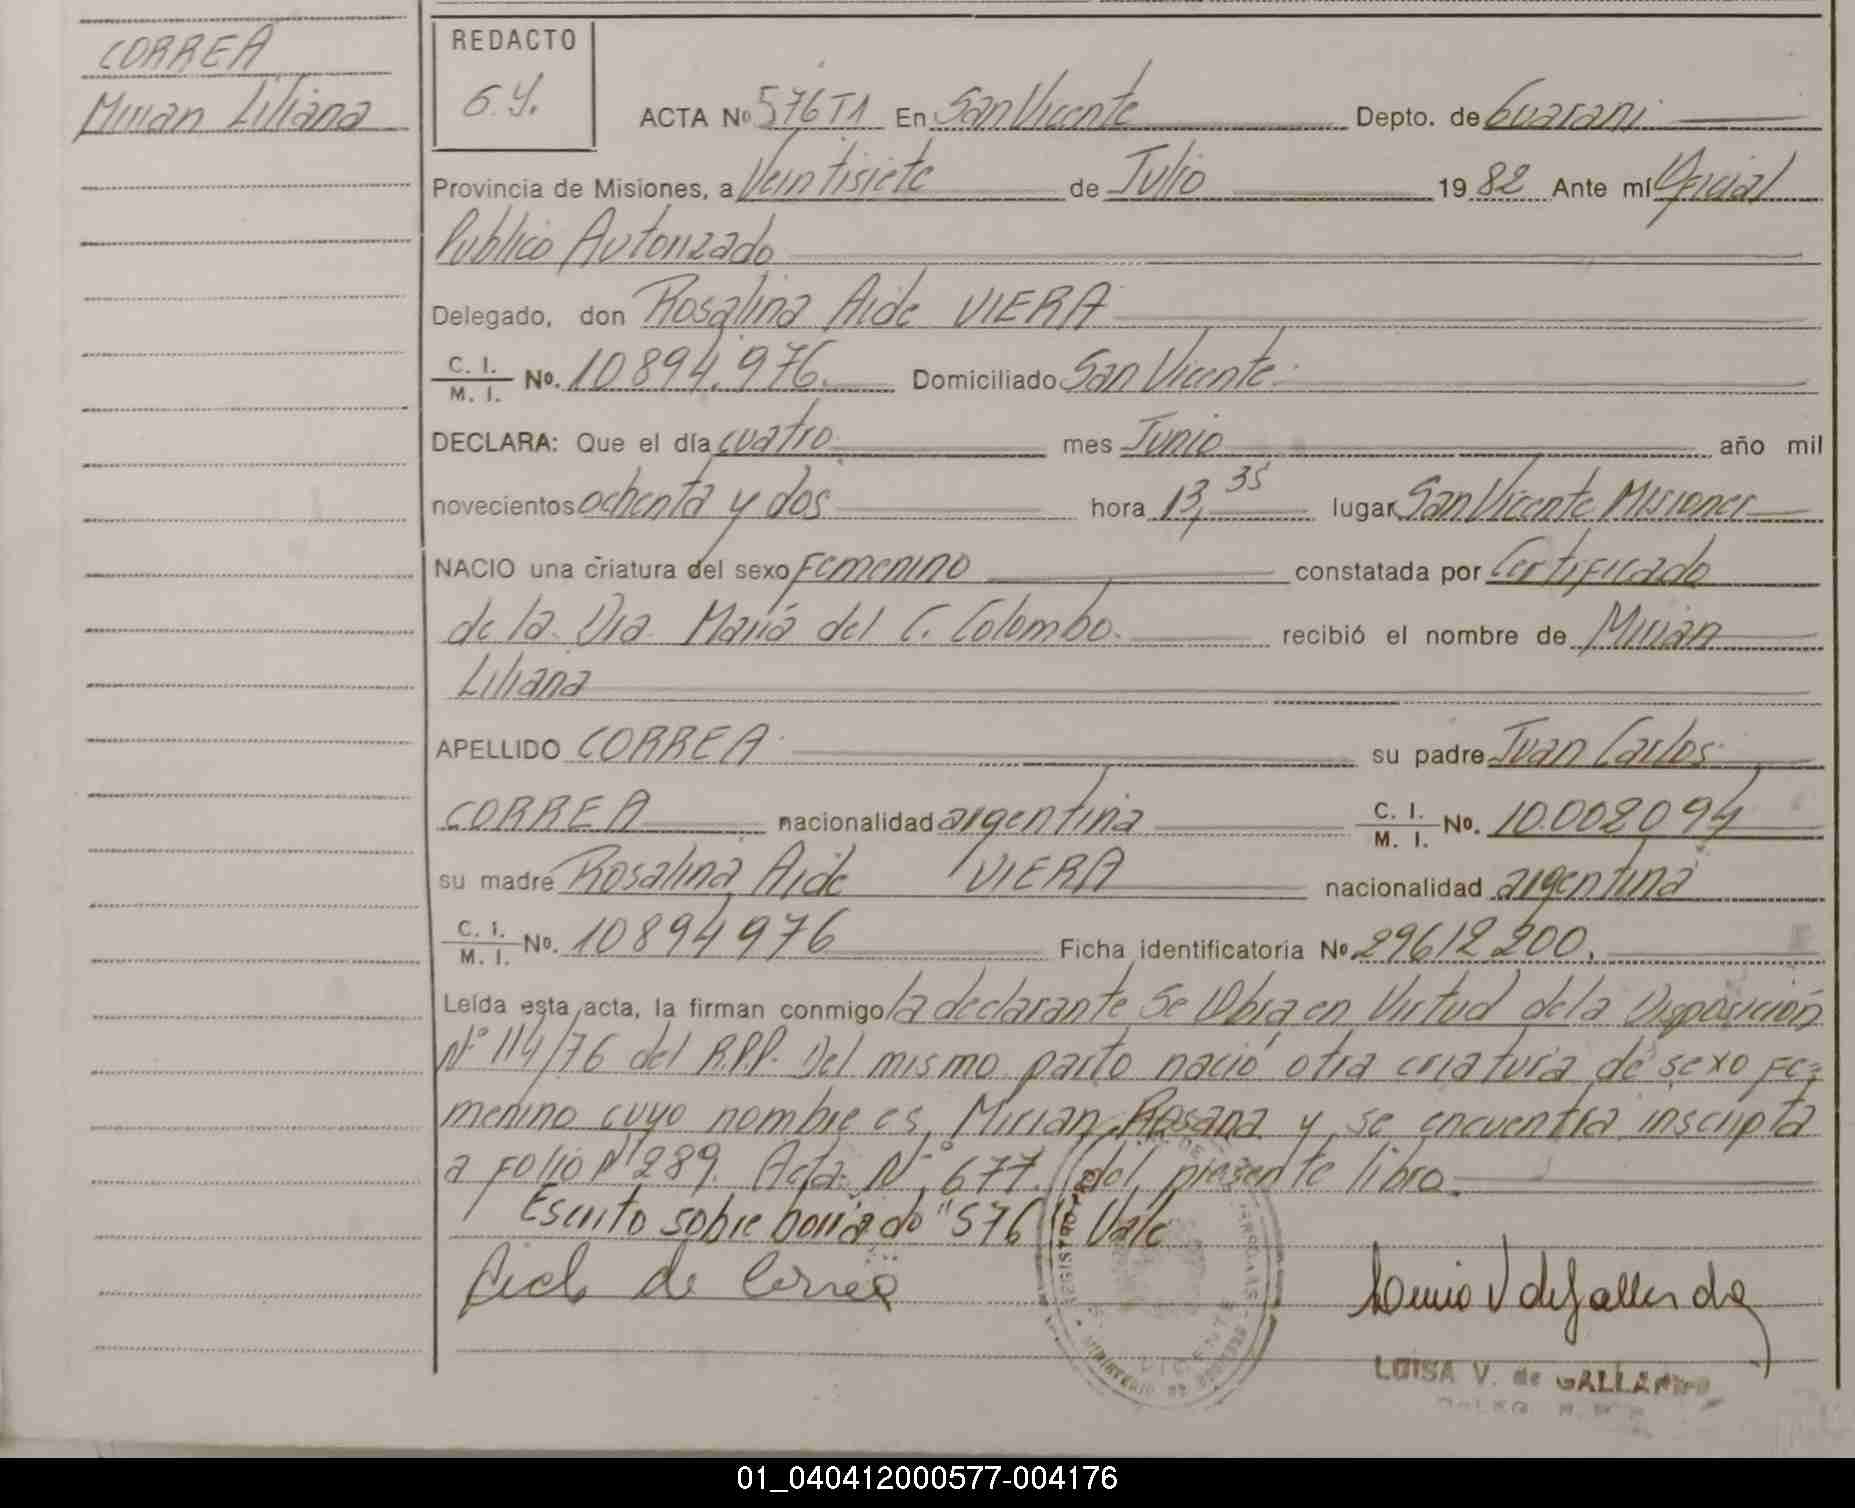 CORREA
Mirian Liliana
REDACTO
G.Y.
ACTA Nº 576 T1 En San Vicente Depto. de Guarani
Provincia de Misiones, a Veintisiete de Julio 1982 Ante mí Oficial
Publico Autorizado
Delegado, don Rosalina Aide VIERA
C. I.
M. I. Nº. 10894.976. Domiciliado San Vicente.
DECLARA: Que el día cuatro mes Junio año mil
novecientos ochenta y dos hora 13,35 lugar San Vicente Misiones
NACIO una criatura del sexo Femenino constatada por Certificado
de la Dra. María del C. Colombo. recibió el nombre de Mirian
Liliana
APELLIDO CORREA su padre Juan Carlos
CORREA nacionalidad argentina C. I.
M. I. Nº. 10.002094
su madre Rosalina Aide VIERA nacionalidad argentina
C. I.
M. I. Nº. 10894976 Ficha identificatoria Nº 29612200.
Leída esta acta, la firman conmigo la declarante Se Obra en Virtud de la Disposición
Nº 114/76 del R.P.P. Del mismo parto nació otra criatura de sexo Fe=
menino cuyo nombre es, Mirian Rosana y se encuentra inscripta
a Folio Nº 289. Acta Nº 677. del presente libro.
Escrito sobre borrado "576" Vale
de Correa
LUISA V. de GALLARDO
01_040412000577-004176